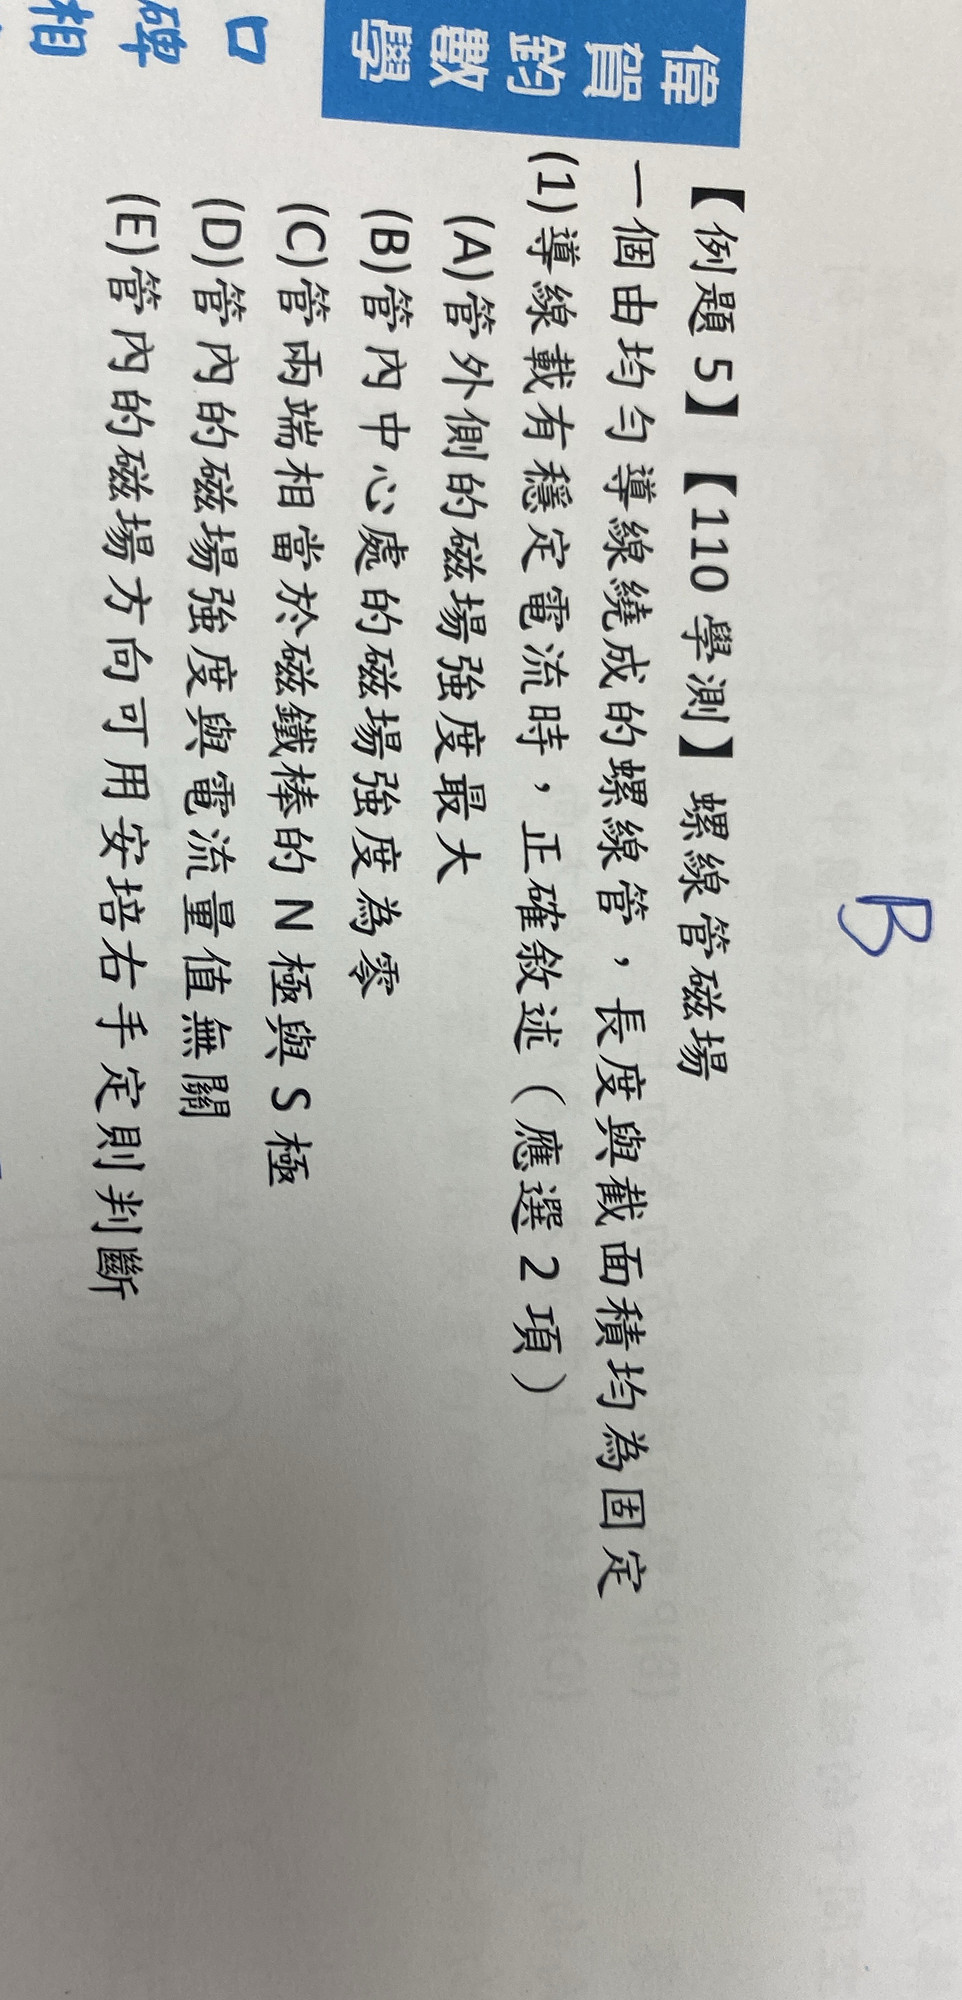 B
【例題 5】【110 學測】螺線管磁場
一個由均勻導線繞成的螺線管，長度與截面積均為固定
(1)導線載有穩定電流時，正確敘述（應選 2 項）
(A)管外側的磁場強度最大
(B)管內中心處的磁場強度為零
(C)管兩端相當於磁鐵棒的 N 極與 S 極
(D)管內的磁場強度與電流量值無關
(E)管內的磁場方向可用安培右手定則判斷
偉
賀
鈞
數
學
口
碑
相